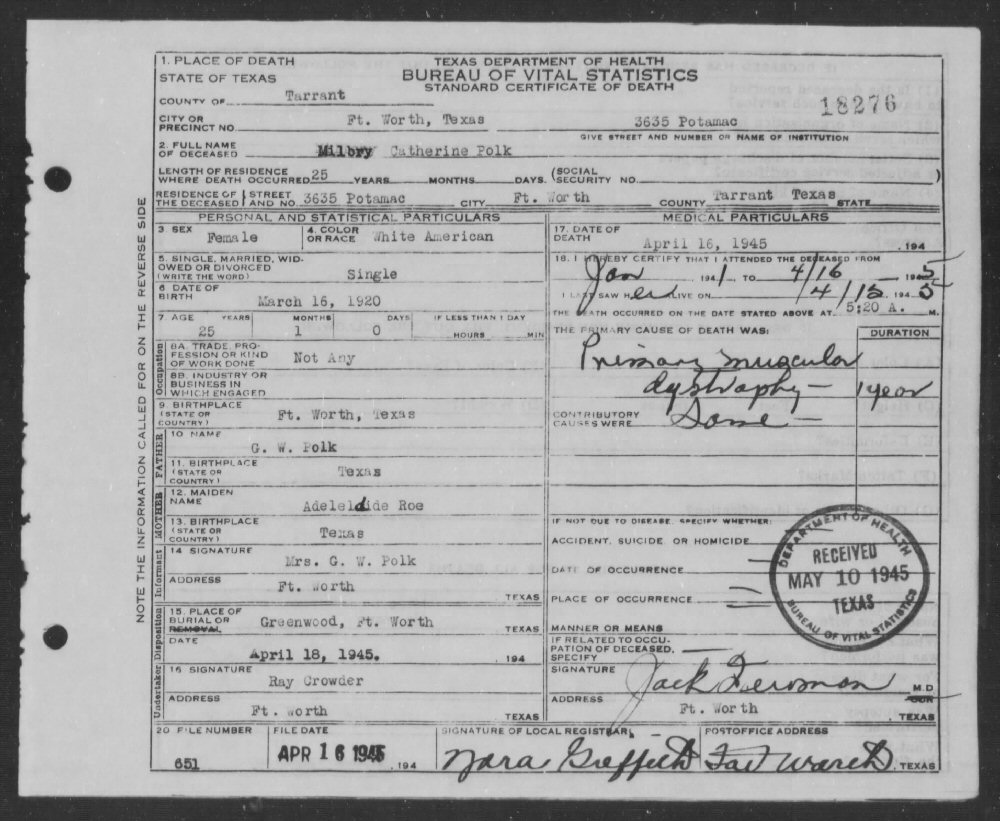 TEXAS DEPARTMENT OF HEALTH
BUREAU OF VITAL STATISTICS
STANDARD CERTIFICATE OF DEATH
18276
1. PLACE OF DEATH
STATE OF TEXAS
COUNTY OF Tarrant
CITY OR PRECINCT NO. Ft. Worth, Texas 3635 Potamac
GIVE STREET AND NUMBER OR NAME OF INSTITUTION
2. FULL NAME OF DECEASED Milbry Catherine Polk
LENGTH OF RESIDENCE WHERE DEATH OCCURRED 25 YEARS MONTHS DAYS. (SOCIAL SECURITY NO. )
RESIDENCE OF THE DECEASED STREET AND NO. 3635 Potamac CITY Ft. Worth COUNTY Tarrant Texas STATE
NOTE THE INFORMATION CALLED FOR ON THE REVERSE SIDE
PERSONAL AND STATISTICAL PARTICULARS
3. SEX Female 4. COLOR OR RACE White American
5. SINGLE, MARRIED, WIDOWED OR DIVORCED (WRITE THE WORD) Single
6 DATE OF BIRTH March 16, 1920
7. AGE YEARS MONTHS DAYS IF LESS THAN 1 DAY
25 1 0 HOURS MIN
Occupation
8A. TRADE, PROFESSION OR KIND OF WORK DONE Not Any
8B. INDUSTRY OR BUSINESS IN WHICH ENGAGED
9. BIRTHPLACE (STATE OR COUNTRY) Ft. Worth, Texas
FATHER
10 NAME G. W. Polk
11. BIRTHPLACE (STATE OR COUNTRY) Texas
MOTHER
12. MAIDEN NAME Adeleldide Roe
13. BIRTHPLACE (STATE OR COUNTRY) Texas
Informant
14 SIGNATURE Mrs. G. W. Polk
ADDRESS Ft. Worth TEXAS
Disposition
15. PLACE OF BURIAL OR REMOVAL Greenwood, Ft. Worth TEXAS
DATE April 18, 1945. , 194
Undertaker
16 SIGNATURE Ray Crowder
ADDRESS Ft. Worth TEXAS
MEDICAL PARTICULARS
17. DATE OF DEATH April 16, 1945 , 194
18. I HEREBY CERTIFY THAT I ATTENDED THE DECEASED FROM
Jan 1941, TO 4/16 1945
I LAST SAW HER ALIVE ON 4/15, 1945
THE DEATH OCCURRED ON THE DATE STATED ABOVE AT 5;20 A. M.
THE PRIMARY CAUSE OF DEATH WAS: DURATION
Primary muscular
dystrophy - 1 year
CONTRIBUTORY CAUSES WERE Same -
IF NOT DUE TO DISEASE, SPECIFY WHETHER:
ACCIDENT, SUICIDE, OR HOMICIDE
DATE OF OCCURRENCE
PLACE OF OCCURRENCE
MANNER OR MEANS
IF RELATED TO OCCUPATION OF DECEASED, SPECIFY
SIGNATURE Jack M.D
ADDRESS Ft. Worth , TEXAS
DEPARTMENT OF HEALTH
RECEIVED
MAY 10 1945
TEXAS
BUREAU OF VITAL STATISTICS
20 FILE NUMBER FILE DATE SIGNATURE OF LOCAL REGISTRAR POSTOFFICE ADDRESS
651 APR 16 1945 , 194 Nora Griffith Fort Worth, TEXAS